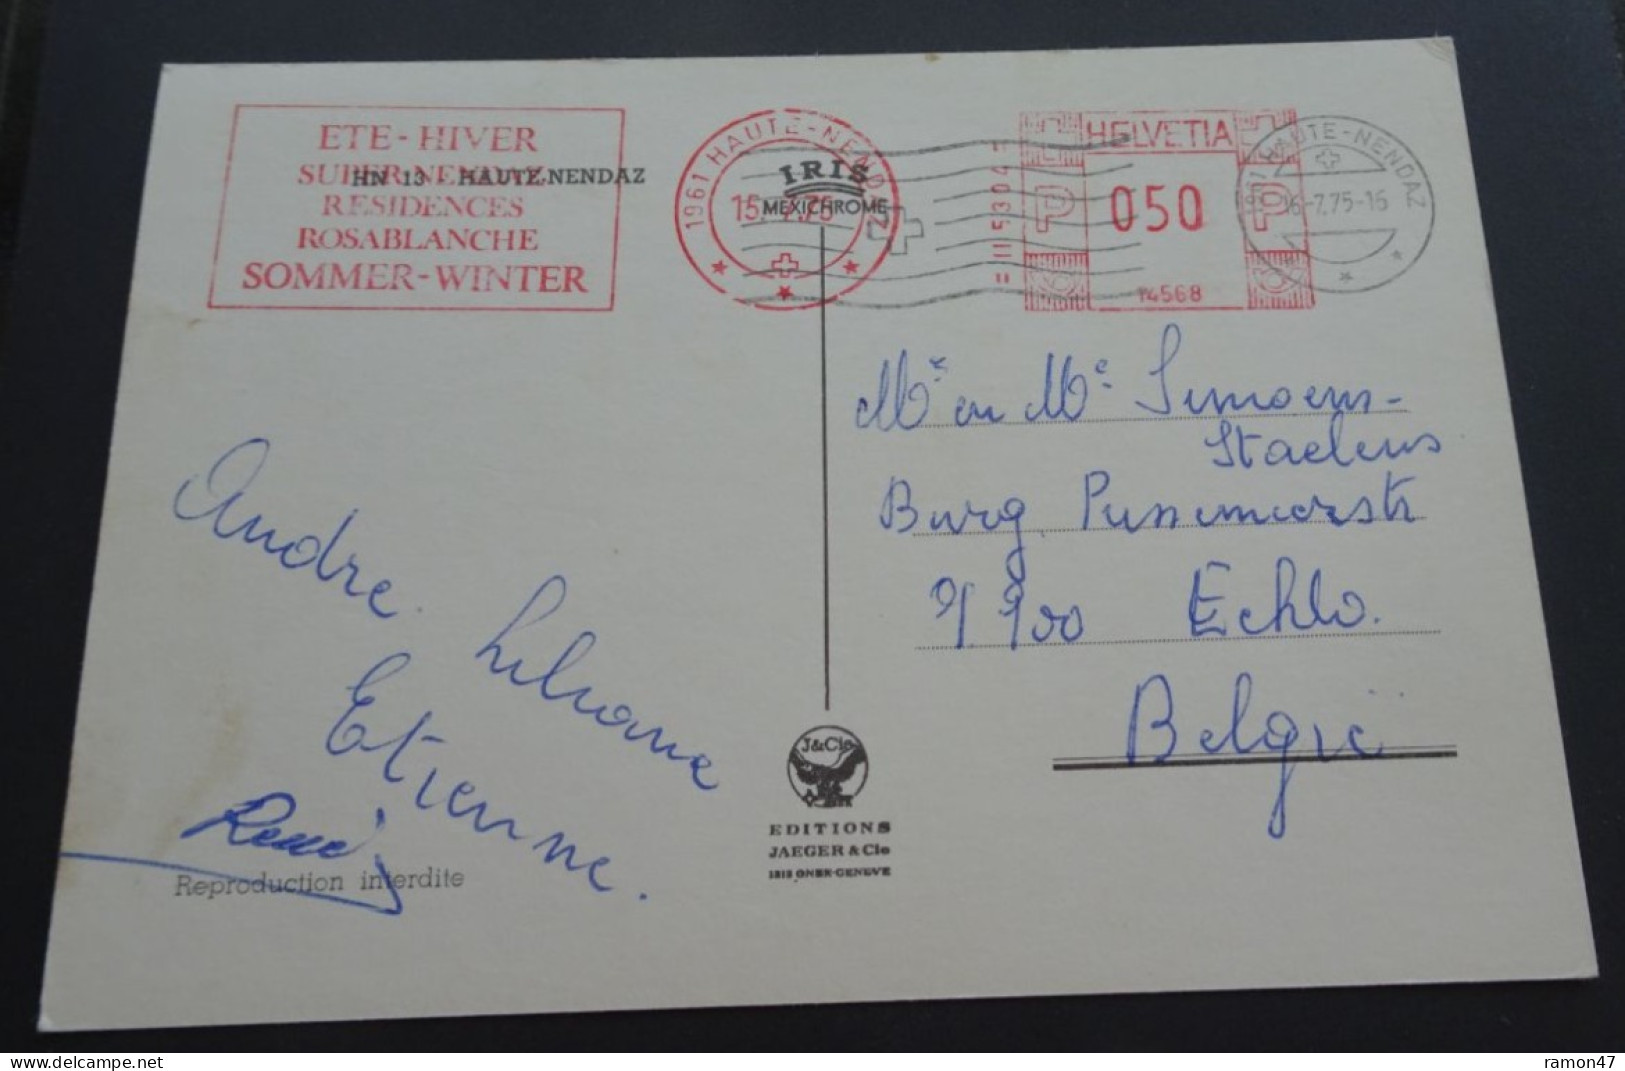 ETE - HIVER
SUPER-NENDAZ
HN 13 - HAUTE-NENDAZ
RESIDENCES
ROSABLANCHE
SOMMER-WINTER
1961 HAUTE-NENDAZ
IRIS
MEXICHROME
= 1153045 =
HELVETIA
P 050 P
14568
1961 HAUTE-NENDAZ
16-7.75-16
Mr en Me Simoens-
Staelens
Burg
9900 Eeklo.
België
Andre. Liliane
Etienne.
René
Reproduction interdite
J&Cie
EDITIONS
JAEGER & Cie
1213 ONEX-GENEVE
delcampe.net
ramon47